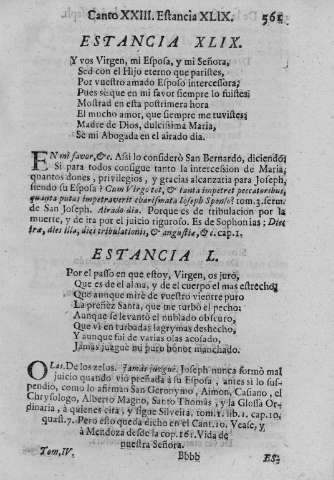 Canto XXIII. Estancia XLIX. 561
ESTANCIA XLIX.
Y vos Virgen, mi Esposa, y mi Señora,
Sed con el Hijo eterno que paristes,
Por vuestro amado Esposo intercesora;
Pues se que en mi favor siempre lo fuistes;
Mostrad en esta postrimera hora
El mucho amor, que siempre me tuvistes;
Madre de Dios, dulcissima Maria,
Se mi Abogada en el airado dia.
EN mi favor, &c. Assi lo considerò San Bernardo, diciendo;
Si para todos consigue tanto la intercession de Maria;
quantos dones, privilegios, y gracias alcanzaria para Joseph,
siendo su Esposa? Cum Virgo tot, & tanta impetret peccatoribus,
quanta putas impetraverit charismata Ioseph Sponso? tom.3.serm.
de San Joseph. Airado dia. Porque es de tribulacion por la
muerte, y de ira por el juicio riguroso. Es de Sophonias: Dies
iræ, dies illa, dies tribulationis, & angustiæ, &c. cap.1.
ESTANCIA L.
Por el passo en que estoy, Virgen, os juro,
Que es de el alma, y de el cuerpo el mas estrecho,
Que aunque mirè de vuestro vientre puro
La preñèz Santa, que me turbó el pecho;
Aunque se levantó el nublado obscuro,
Que vi en turbadas lagrymas deshecho,
Y aunque fui de varias olas acosado,
Jamàs juzguè mi puro honor manchado.
OLas. De los zelos. Jamàs juzguè. Joseph nunca formò mal
juicio quando viò preñada à su Esposa, antes si lo sus-
pendio, como lo afirman San Geronymo, Aimon, Casiano, el
Chrysologo, Alberto Magno, Santo Thomàs, y la Glossa Or-
dinaria, à quienes cita, y sigue Silveira, tom.1. lib.1. cap.10,
quæst.7. Pero esto queda dicho en el Cant.10. Vease, y
à Mendoza desde la cop.161. Vida de
nuestra Señora.
Tom. IV. Bbbb ES-